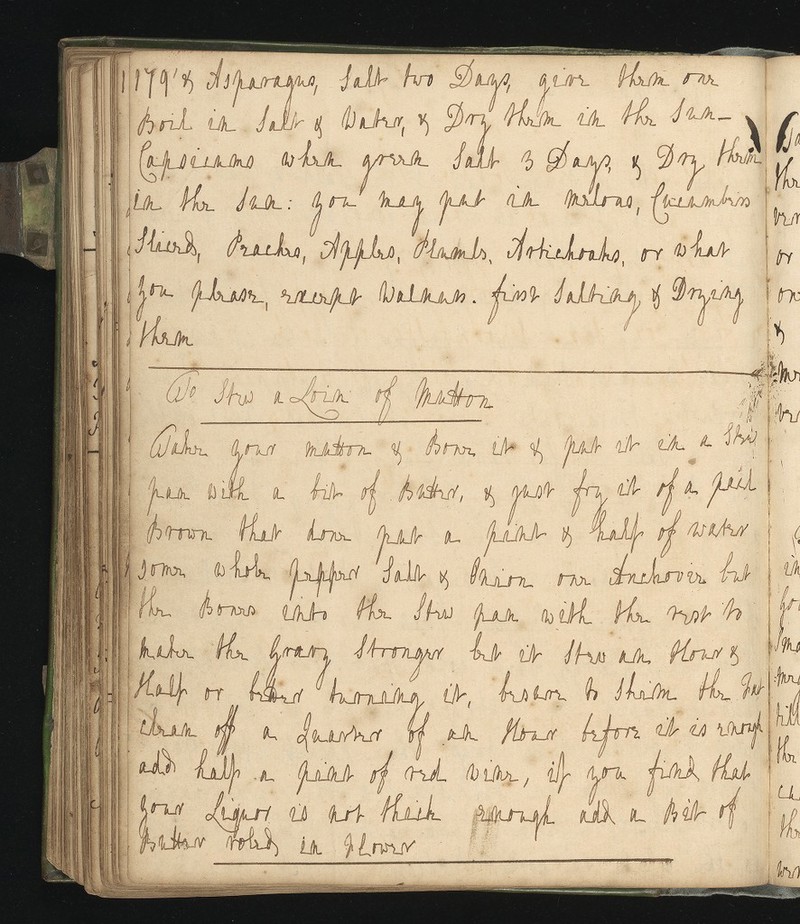 179 & Asparagus, Salt two Days, give them one
Boil in Salt & Water, & Dry them in the Sun -
Capsicums when green Salt 3 Days, & Dry them
in the Sun: you may put in melons, Cucumbers
Sliced, Peaches, Apples, Plumbs, Artichoaks, or what
you please, except Walnuts. first Salting & Drying
them
To Stew a Loin of Mutton
Take your mutton & Bone it & put it in a Stew
pan with a bit of Butter, & just fry it of a pail
Brown that done put a pint & half of water
some whole pepper Salt & Onion one Anchovie but
the Bones into the Stew pan with the rest to
make the Gravy Stronger let it Stew an Hour &
Half or better turning it, besure to Skim the Fat
clean off a Quarter of an Hour before it is enough
add half a pint of red wine, if you find that
your Liquor is not thick enough add a Bit of
Butter roled in Flower